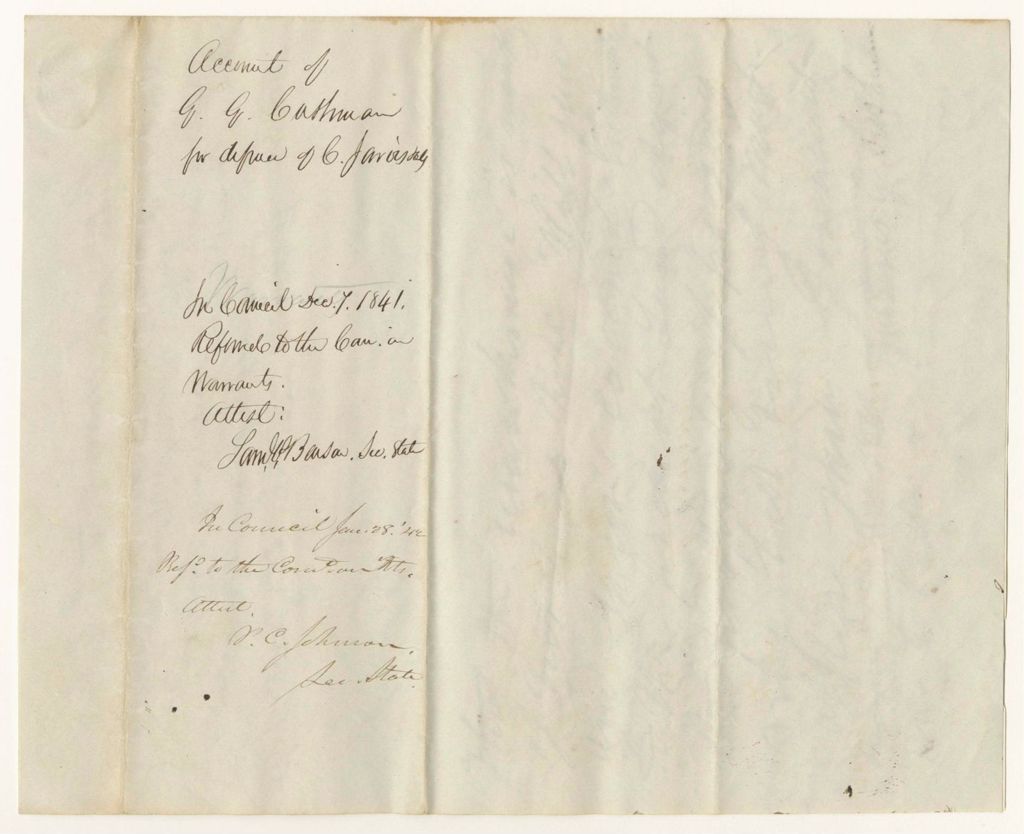 Account of
G. G. Cushman
for defence of C. Jarvis &als
In Council Dec. 7. 1841.
Referred to the Com. on
Warrants.
Attest:
Sam. P. Benson. Sec. State
In Council Jan. 28. '42
Refd. to the Come. on Wts.
Attest.
P. C. Johnson,
Sec. State.